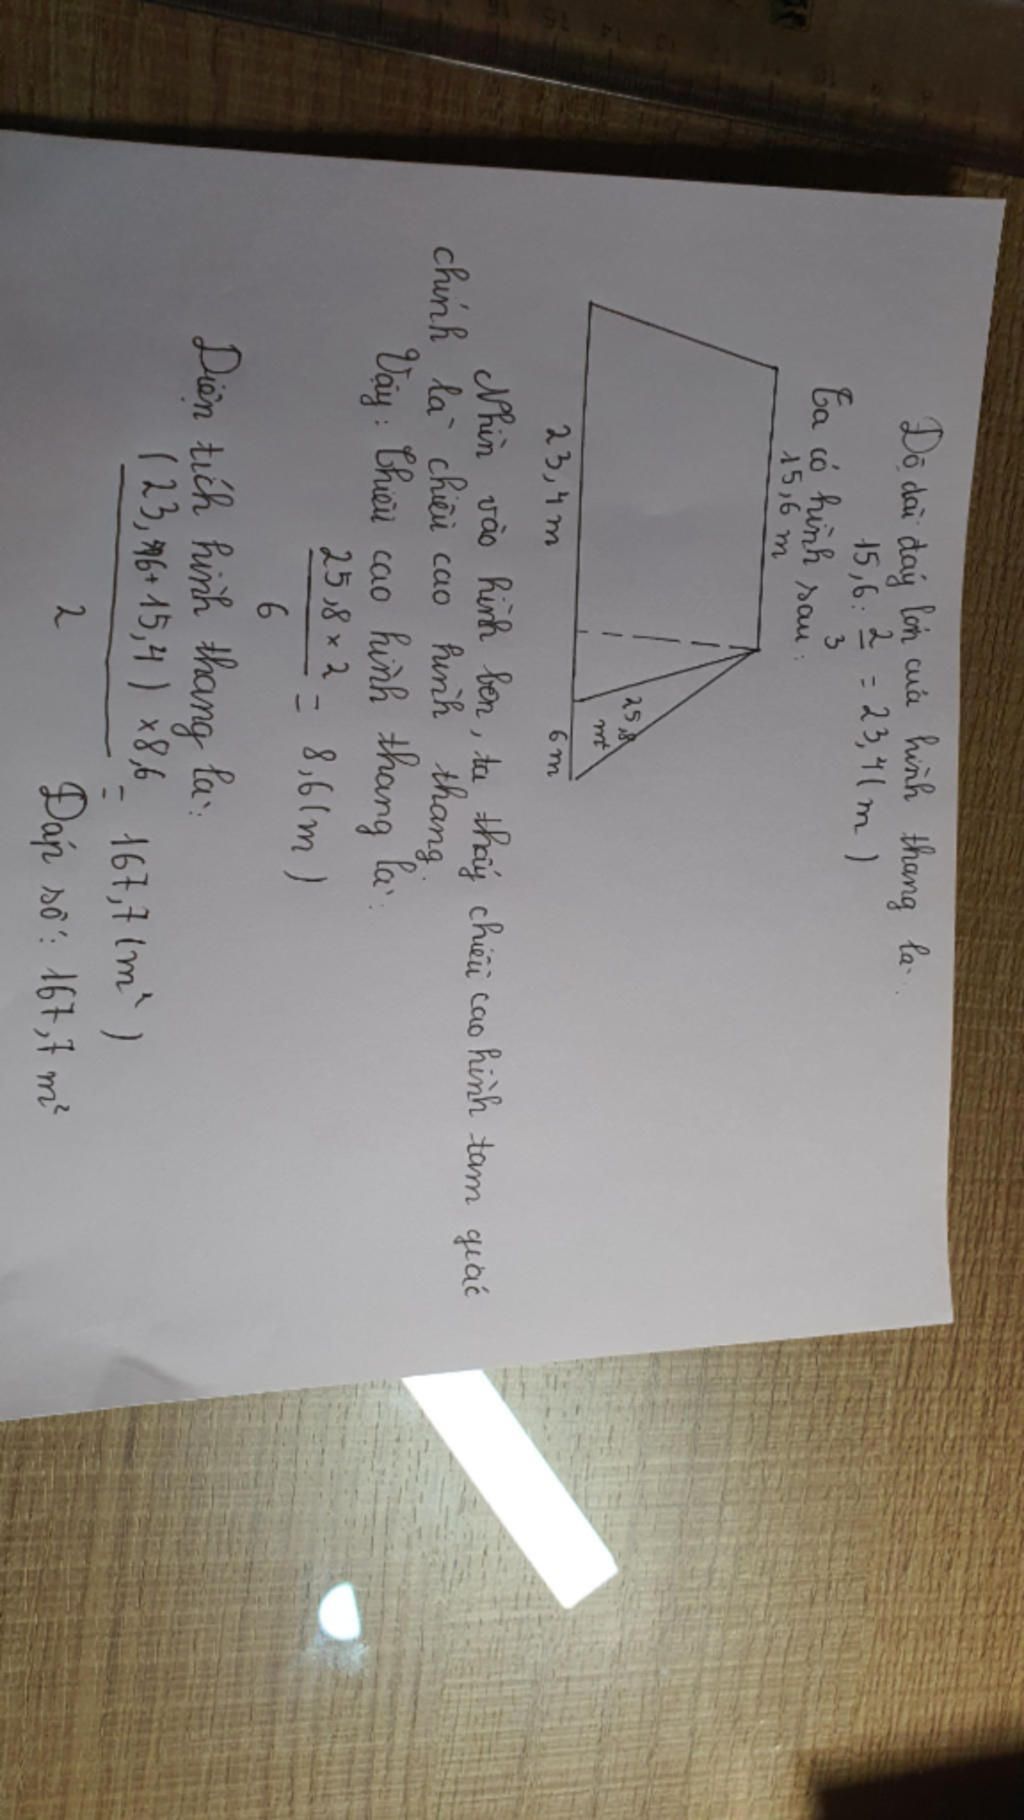 Độ dài đáy lớn của hình thang là:
15,6 : 2/3 = 23,4 (m)
Ta có hình sau:
15,6 m
25,8 m²
23,4 m
6 m
Nhìn vào hình bên, ta thấy chiều cao hình tam giác
chính là chiều cao hình thang.
Vậy: Chiều cao hình thang là:
25,8 × 2 / 6 = 8,6 (m)
Diện tích hình thang là:
(23,6 + 15,4) × 8,6 / 2 = 167,7 (m²)
Đáp số: 167,7 m²